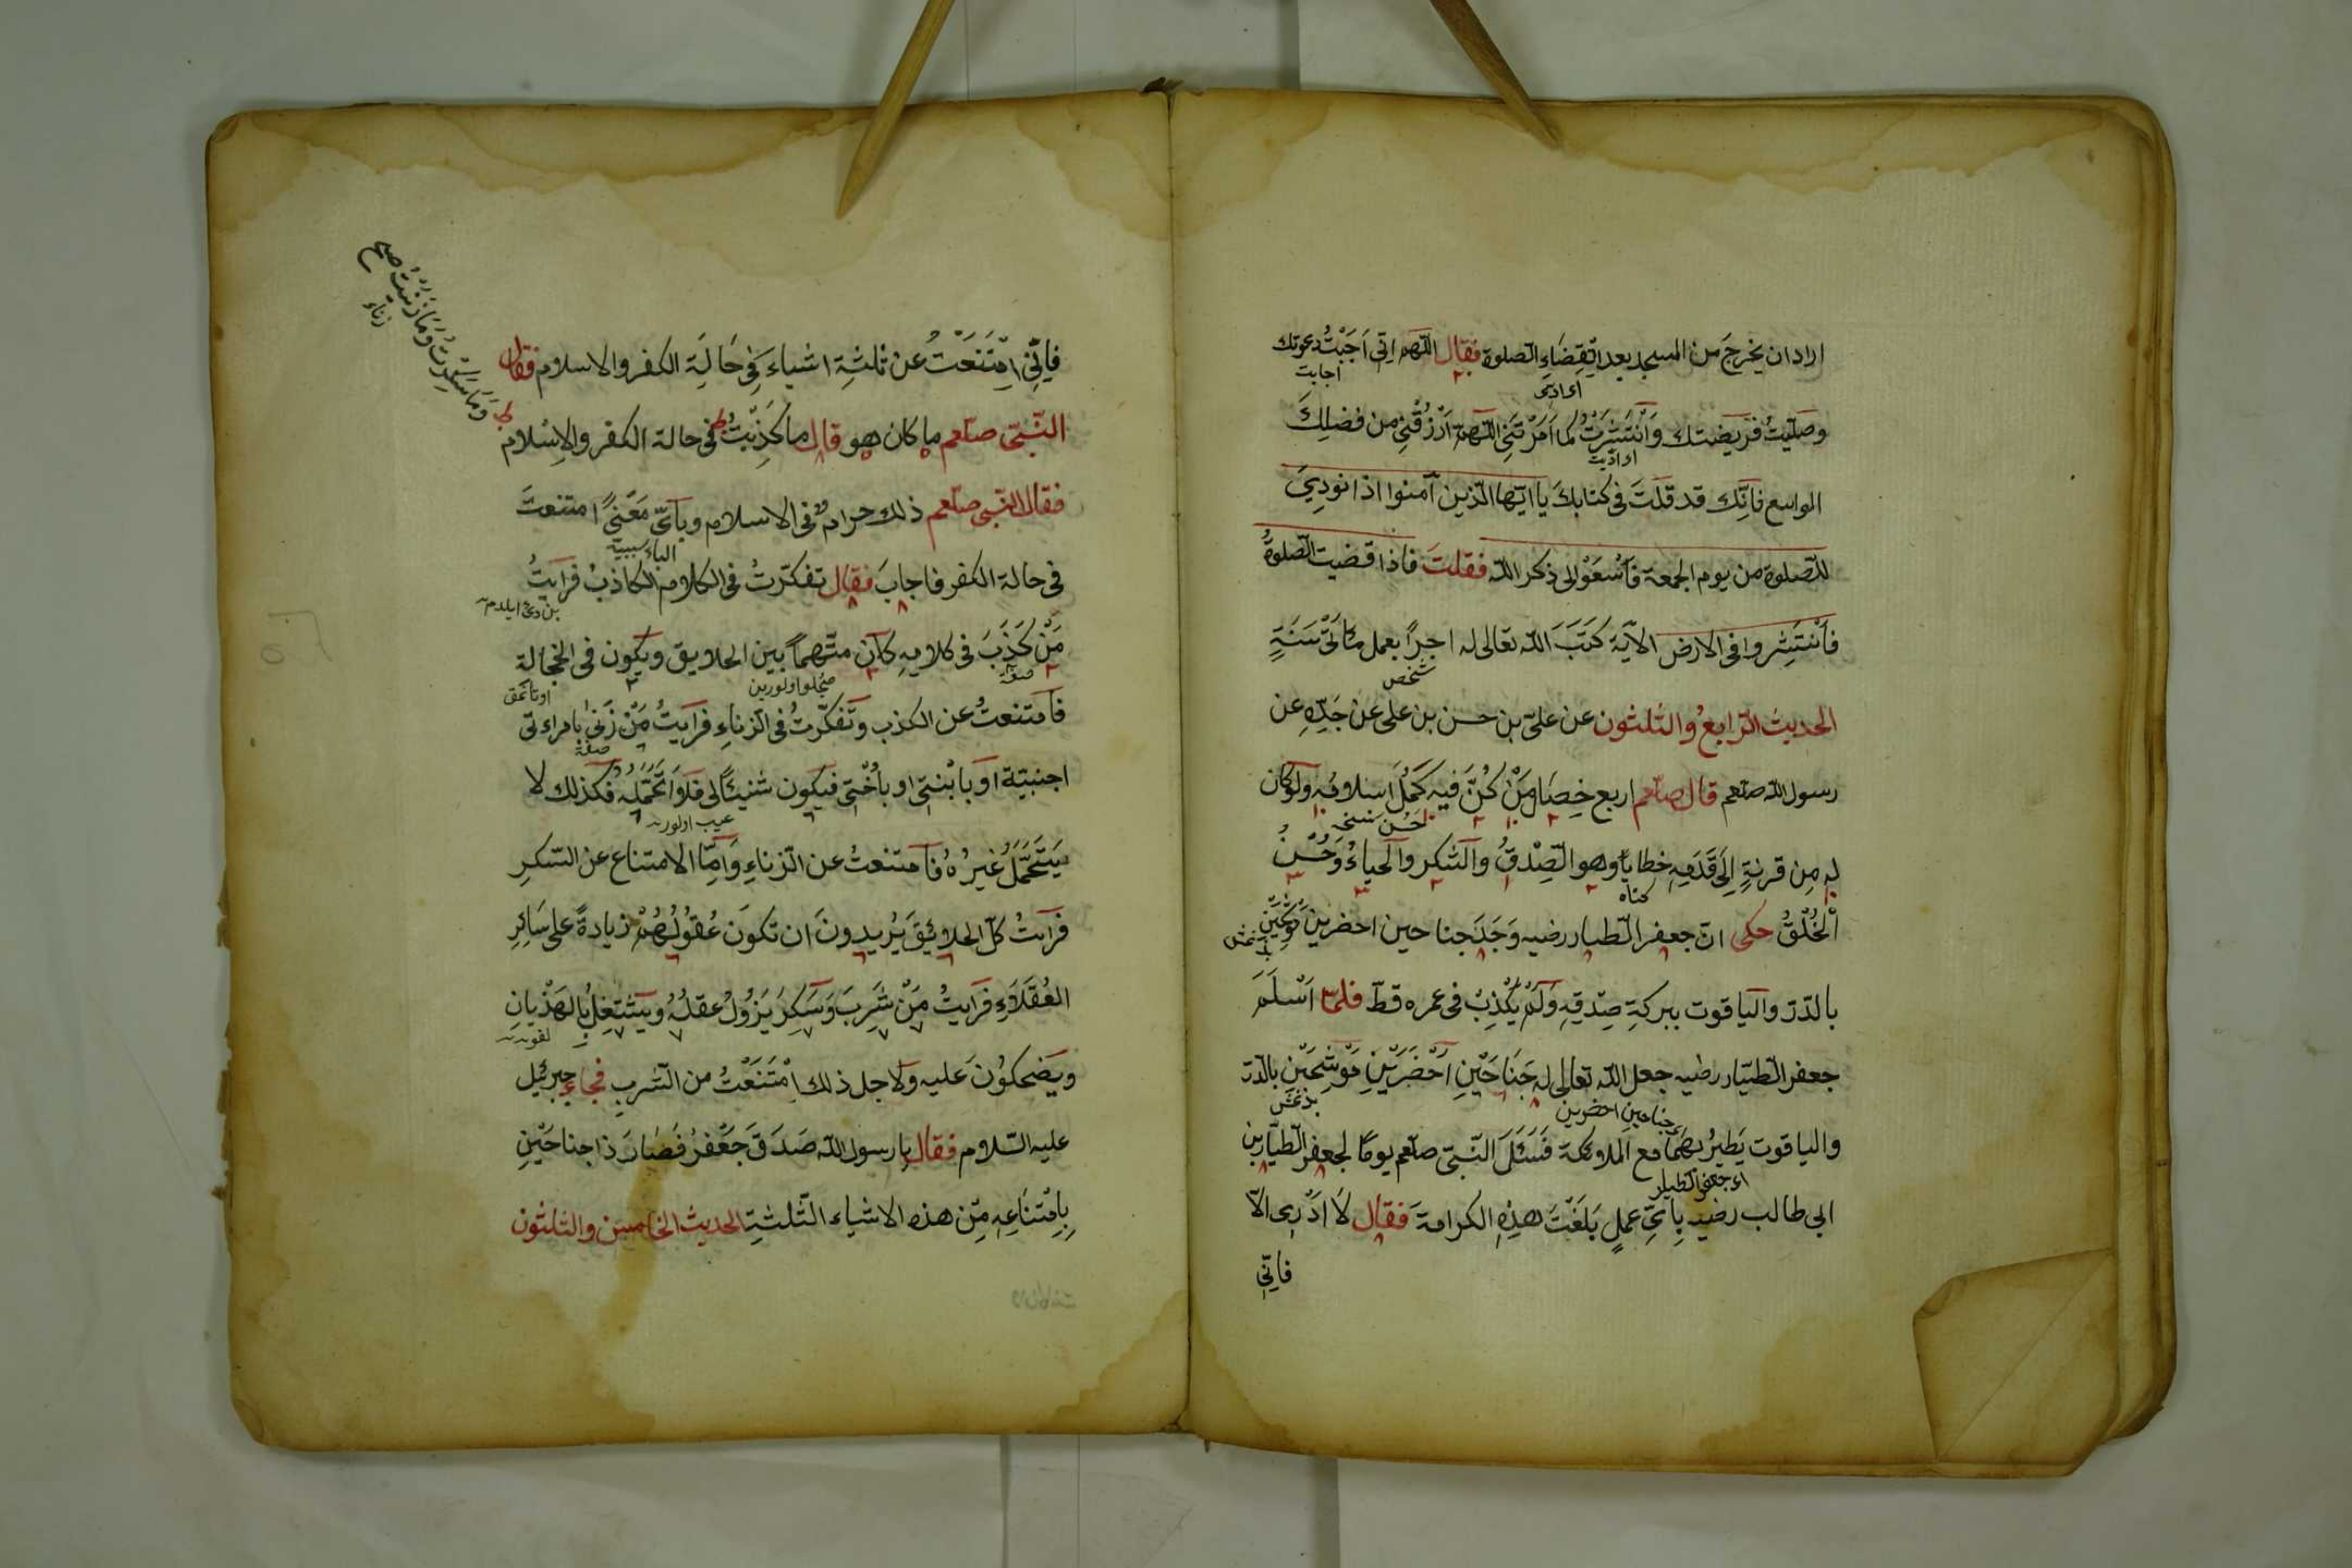 اراد ان يخرج من المسجد بعد انقضاء الصلوة فقال اللهم انى اجبت دعوتك
اجابت
اى ادى
وصليت فريضتك وانتشرت كما امرتنى اللهم ارزقنى من فضلك
او اديت
الواسع فانك قد قلت فى كتابك يا ايها الذين آمنوا اذا نودى
للصلوة من يوم الجمعة فاسعوا الى ذكر الله فقلت فاذا قضيت الصلوة
فانتشروا فى الارض الآية كتب الله تعالى له اجرا بعمل مأتى سنة
شخص
الحديث الرابع والثلثون عن على بن حسن بن على عن جده عن
رسول الله صلعم قال صلعم اربع خصال من كن فيه كمل اسلامه ولو كان
لحسن نسخه
له من قرنه الى قدمه خطايا وهو الصدق والشكر والحياء وحسن
كناه
الخلق حكى ان جعفر الطيار رضيه وجد جناحين احضرين
بالدر والياقوت ببركة صدقه ولم يكذب فى عمره قط فلما اسلم
جعفر الطيار رضيه جعل الله تعالى له جناحين احضرين موشحين بالدر
جناحين احضرين
والياقوت يطير بهما مع الملائكة فسئل النبى صلعم يوما لجعفر الطيار بن
اى جعفر الطيار
ابى طالب رضيه باى عمل بلغت هذه الكرامة فقال لا ادرى الا
فانى
فانى امتنعت عن ثلثة اشياء فى حالة الكفر والاسلام فقال
وما سكرت وما زنيت صح
زناء
النبى صلعم ما كان هو قال ما كذبت فى حالة الكفر والاسلام
فقال النبى صلعم ذلك حرام فى الاسلام وباى معنى امتنعت
الباء سببية
فى حالة الكفر فاجاب فقال تفكرت فى الكلام الكاذب فرايت
من كذب فى كلامه كان متهما بين الخلايق ويكون فى الخجالة
صفة
اوتانمق
فامتنعت عن الكذب وتفكرت فى الزناء فرايت من زنى بامراءتى
صفة
اجنبية او بابنتى او باختى فيكون شنيئا لى فلا اتحمله فكذلك لا
عيب اولور
يتحمل غيره فامتنعت عن الزناء واما الامتناع عن السكر
فرايت كل الخلايئق يريدون ان تكون عقولهم زيادة على سائر
العقلاء فرايت من شرب وسكر يزول عقله ويشتغل بالهذيان
ويضحكون عليه ولاجل ذلك امتنعت من الشرب فجاء جبرئيل
عليه السلام فقال يا رسول الله صدق جعفر فصار ذا جناحين
بامتناعه من هذه الاشياء الثلثة الحديث الخامس والثلثون